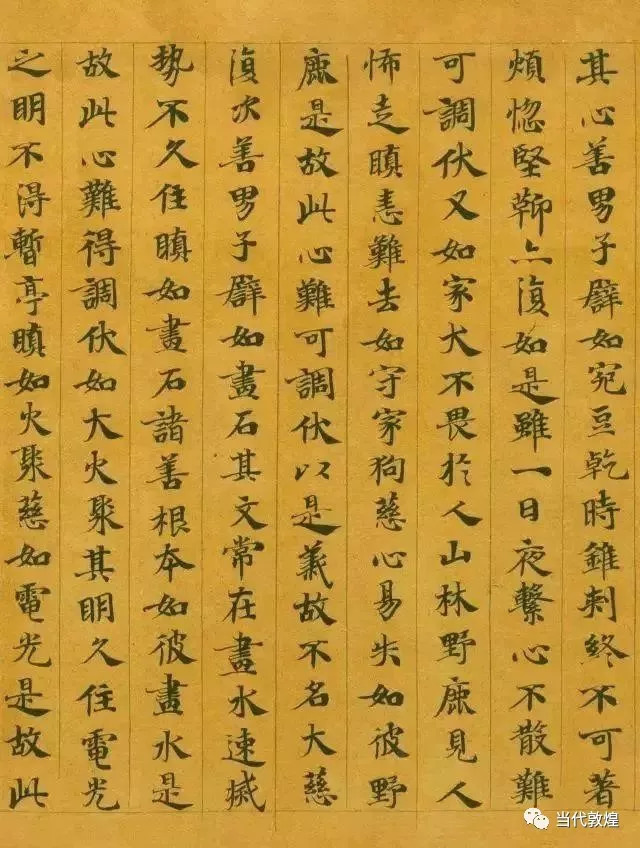 其心善男子譬如宛豆乾時錐刾終不可著
煩惚堅鞕亦復如是雖一日夜繫心不散難
可調伏又如家犬不畏於人山林野鹿見人
怖走瞋恚難去如守家狗慈心易失如彼野
鹿是故此心難可調伏以是義故不名大慈
復次善男子譬如畫石其文常在畫水速滅
勢不久住瞋如畫石諸善根本如彼畫水是
故此心難得調伏如大火聚其明久住電光
之明不得暫亭瞋如火聚慈如電光是故此
当代敦煌